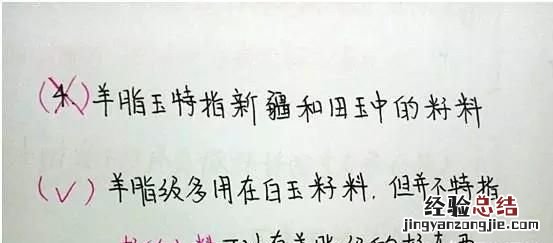 (4.)羊脂玉特指新疆和田玉中的籽料
(√)羊脂级多用在白玉籽料,但并不特指
经验总结
jingyanzongjie.com